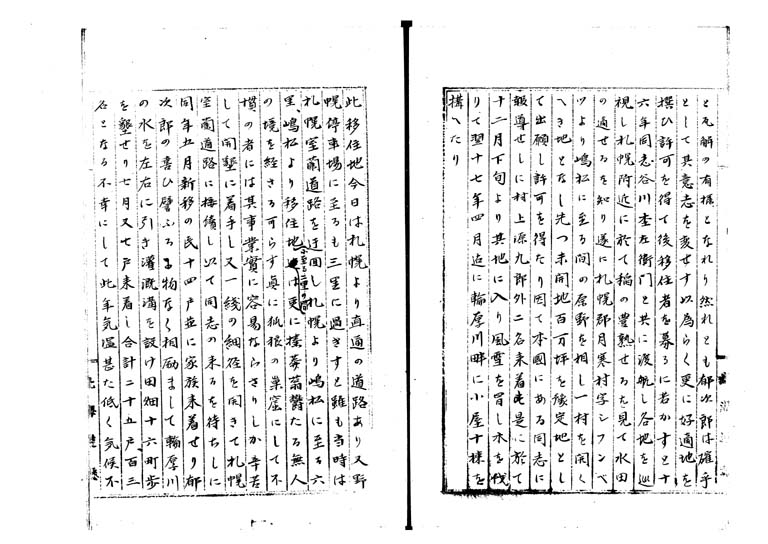 と瓦解の有様となれり然れとも郁次郎は確乎
として其意志を変せす以為らく更に好適地を
撰ひ許可を得て後移住者を募るに若かすと十
六年同志谷川杢左衛門と共に渡航し各地を巡
視し札幌附近に於て稲の豊熟せるを見て水田
の適せるを知り遂に札幌郡月寒村字シフンベ
ツより嶋松に至る間の原野を相し一村を開く
へき地となし先つ未開地百万坪を予定地とし
て出願し許可を得たり因て本国にある同志に
報導せしに村上源九郎外二名来着
於て
十二月下旬より其地に入り風雪を冒し木を伐
りて翌十七年四月迄に輪厚川畔に小屋十棟を
構へたり
此移住地今日は札幌より直通の道路あり又野
幌停車場に至るも三里に過きすと雖も当時は
札幌室蘭道路を迂回し札幌より嶋松に至る六
里、嶋松より移住地に至る二里の間は更に榛莽蓊鬱たる無人
の境を経さる可らす真に狐狼の巣窟にして不
慣の者には其事業実に容易ならさりしか辛苦
して開墾に着手し又一線の細径を開きて札幌
室蘭道路に接続し以て同志の来るを待ちしに
同年五月新移の民十四戸並に家族来着せり郁
次郎の喜ひ譬ふるに物なく相励まして輪厚川
の水を左右に引き灌漑溝を設け田畑十六町歩
を墾せり七月又七戸来着し合計二十五戸、百三
名となる不幸にして此年気温甚た低く気候不